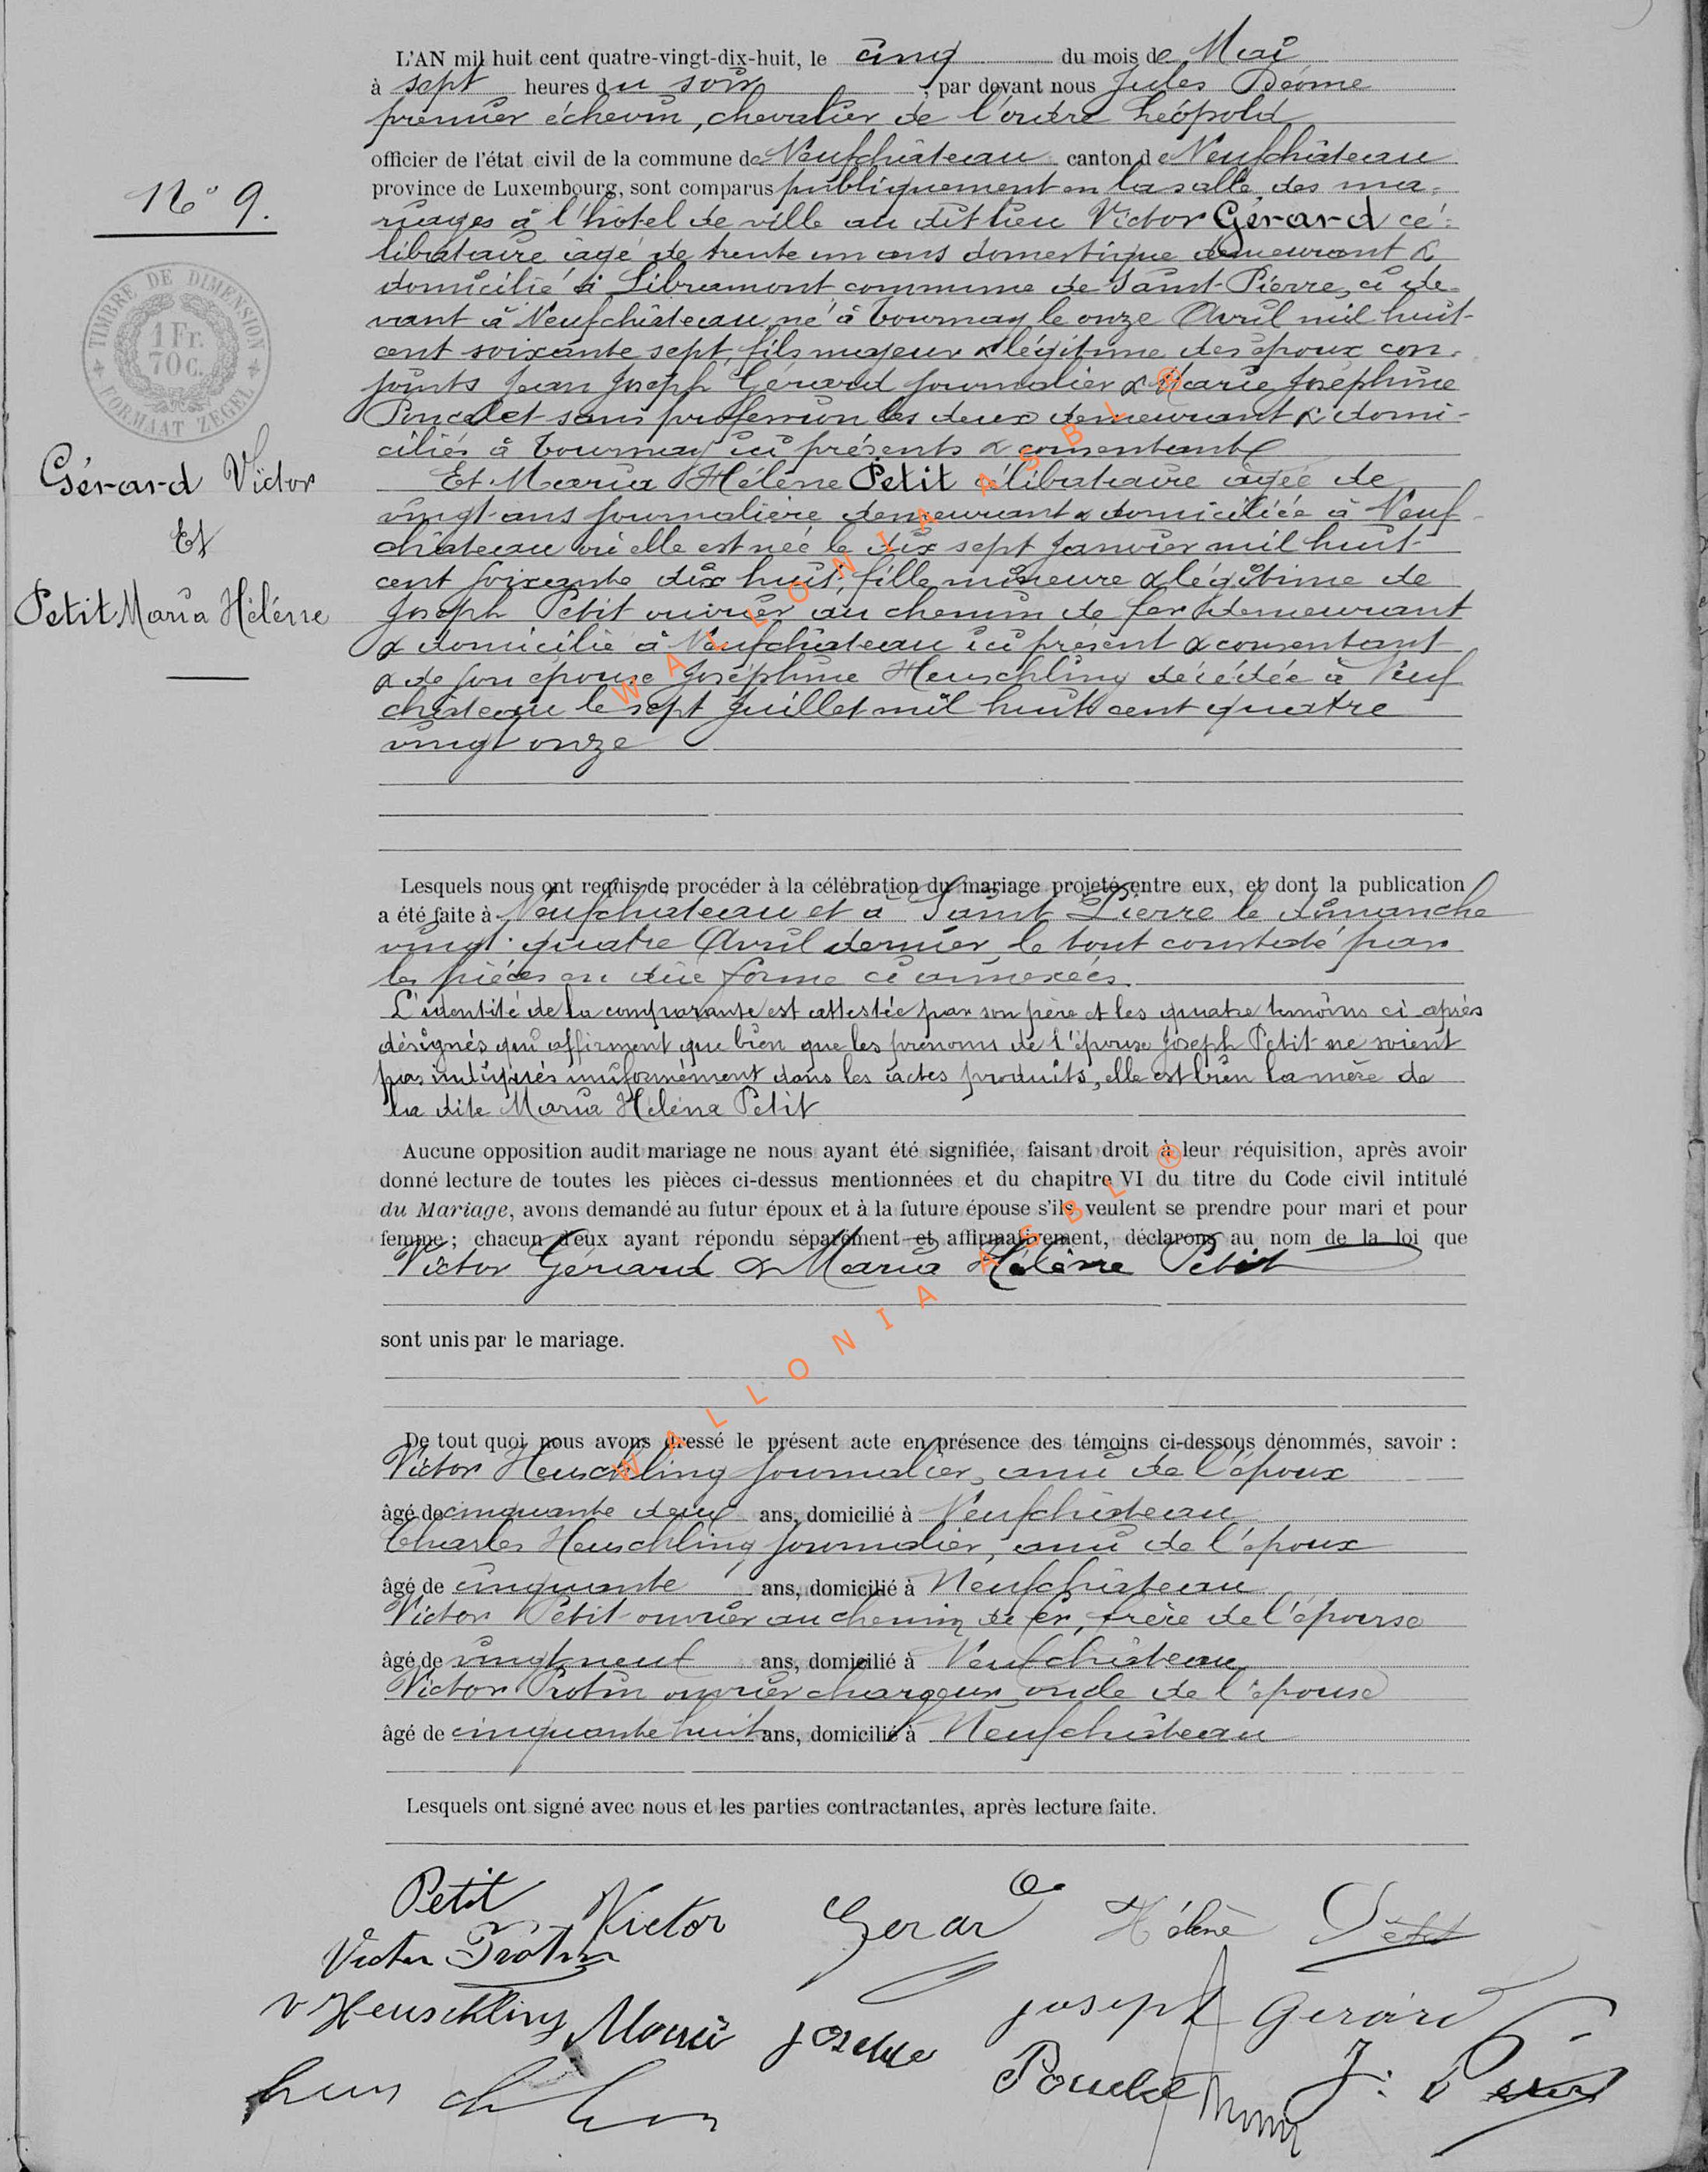 L'AN mil huit cent quatre-vingt-dix-huit, le cinq du mois de Mai
à sept heures du soir, par devant nous Jules Déome
premier échevin, chevalier de l'ordre Léopold
officier de l'état civil de la commune de Neufchâteau canton de Neufchâteau
province de Luxembourg, sont comparus publiquement en la salle des ma-
riages à l'hôtel de ville au dit lieu Victor Gérard cé-
libataire âgé de trente un ans domestique demeurant &
domicilié à Libramont commune de Saint-Pierre, ci de-
vant à Neufchâteau, né à Tournay le onze Avril mil huit
cent soixante sept, fils majeur & légitime des époux con-
joints Jean Joseph Gérard journalier & Marie Joséphine
Poncelet sans profession les deux demeurant & domi-
ciliés à Tournay ici présents & consentants
Et Maria Hélène Petit célibataire âgée de
vingt ans journalière demeurant & domiciliée à Neuf-
château où elle est née le dix sept Janvier mil huit
cent soixante dix huit, fille mineure & légitime de
Joseph Petit ouvrier au chemin de fer demeurant
& domicilié à Neufchâteau ici présent & consentant
& de son épouse Joséphine Heuschling décédée à Neuf
château le sept Juillet mil huit cent quatre
vingt onze
N° 9.
TIMBRE DE DIMENSION
1 Fr.
70 C.
FORMAAT ZEGEL
Gérard Victor
Et
Petit Maria Hélène
Lesquels nous ont requis de procéder à la célébration du mariage projeté entre eux, et dont la publication
a été faite à Neufchâteau et à Saint Pierre le dimanche
vingt-quatre Avril dernier, le tout constaté par
les pièces en due forme ci annexées.
L'identité de la comparante est attestée par son père et les quatre témoins ci après
désignés qui affirment que bien que les prénoms de l'épouse Joseph Petit ne soient
pas indiqués uniformément dans les actes produits, elle est bien la mère de
la dite Maria Héléna Petit
Aucune opposition audit mariage ne nous ayant été signifiée, faisant droit à leur réquisition, après avoir
donné lecture de toutes les pièces ci-dessus mentionnées et du chapitre VI du titre du Code civil intitulé
du Mariage, avons demandé au futur époux et à la future épouse s'ils veulent se prendre pour mari et pour
femme ; chacun d'eux ayant répondu séparément et affirmativement, déclarons au nom de la loi que
Victor Gérard & Maria Hélène Petit
sont unis par le mariage.
De tout quoi nous avons dressé le présent acte en présence des témoins ci-dessous dénommés, savoir :
Victor Heuschling journalier, ami de l'époux
âgé de cinquante deux ans, domicilié à Neufchâteau
Charles Heuschling journalier, ami de l'époux
âgé de cinquante ans, domicilié à Neufchâteau
Victor Petit ouvrier au chemin de fer, frère de l'épouse
âgé de vingt neuf ans, domicilié à Neufchâteau
Victor Protin ouvrier chargeur oncle de l'épouse
âgé de cinquante huit ans, domicilié à Neufchâteau
Lesquels ont signé avec nous et les parties contractantes, après lecture faite.
Petit Victor Gerar Hélène Petit
Victor Protin
v Heuschling Marie josephe joseph Gerard
WALLONIA ASBL ®
WALLONIA ASBL ®